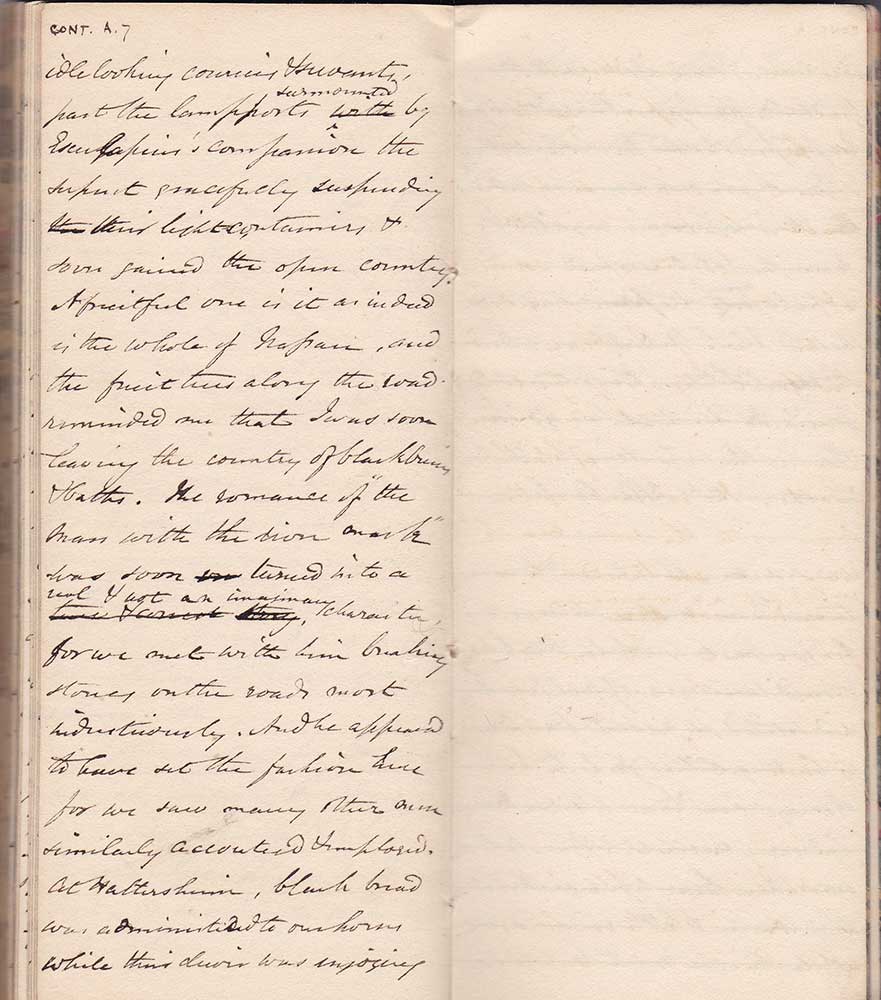 CONT. A. 7
idle looking couriers & servants,
surmounted
past the lampposts with by
Esculapius's companion the
serpent gracefully suspending
the their light containers &
soon gained the open country.
A fruitful one is it as indeed
is the whole of Nassau, and
the fruit trees along the road
reminded me that I was soon
leaving the country of black
& baths. The romance of "the
man with the iron mask"
was soon turned into a
real & not an imaginary
true & correct story, character,
for we met with him breaking
stones on the roads most
industriously. And he appeared
to have set the fashion here
for we saw many other men
similarly accoutred & employed.
At Hattersheim, black bread
was administered to our horses
while their driver was enjoying